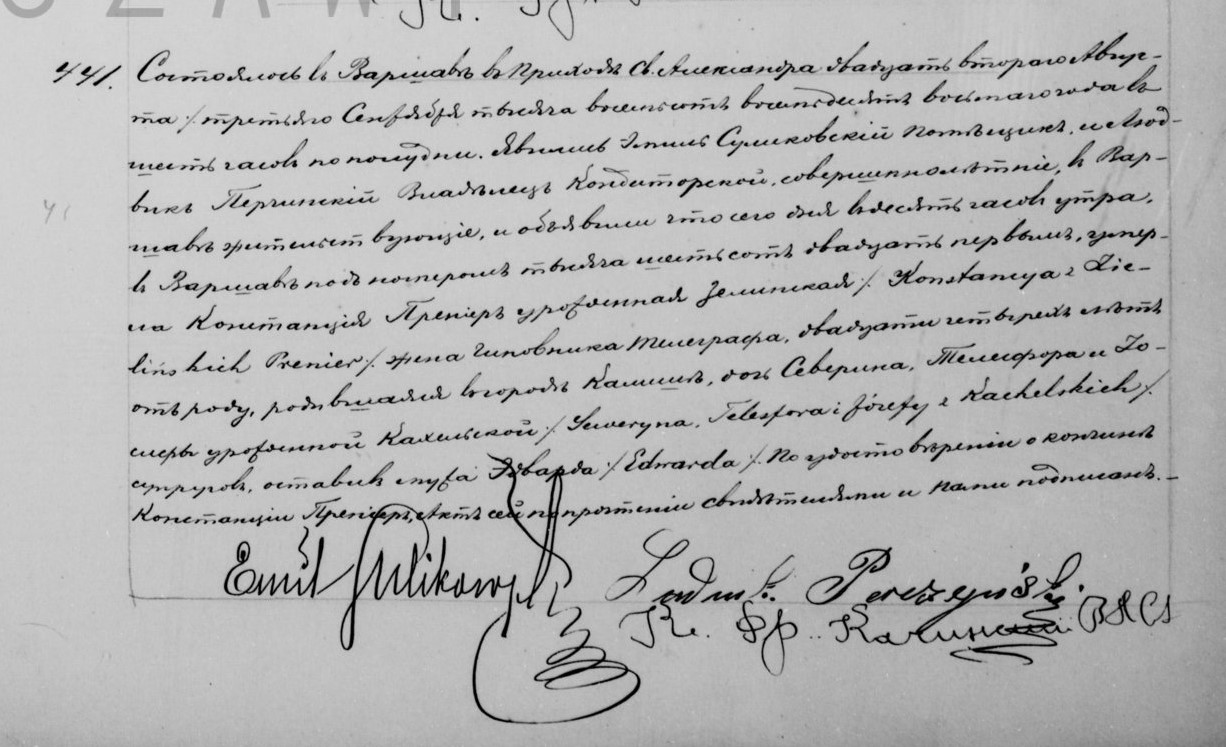 441. Состоялось въ Варшавѣ въ Приходѣ Св. Александра двадцать втораго Авгус-
та /: третьяго Сентября тысяча восемьсотъ восемьдесятъ восьмаго года въ
шесть часовъ по полудни. Явились Эмиль Суликовскій Помѣщикъ, и Люд-
викъ Перчинскій Владѣлецъ Кондиторской, совершеннолѣтніе, въ Вар-
шавѣ жительствующіе, и объявили что сего дня въ десять часовъ утра,
въ Варшавѣ подъ номеромъ тысяча шестьсотъ двадцать первымъ, умер-
ла Констанція Преніеръ урожденная Зелинская /: Konstancya z Zie-
lińskich Prenier /: жена Чиновника Телеграфа, двадцати четырехъ лѣтъ
отъ роду, родившаяся въ городѣ Калишѣ, дочь Северина, Телесфора и Іо-
сефы урожденной Кахельской /: Seweryna, Telesfora i Józefy z Kachelskich /:
супруговъ, оставивъ мужа Эдварда /: Edwarda /: По удостовѣреніи о кончинѣ
Констанціи Преніеръ, Актъ сей по прочтеніи свидѣтелями и нами подписанъ. —
Emil Sulikowski Ludwik Perczyński
Кс. Фр.